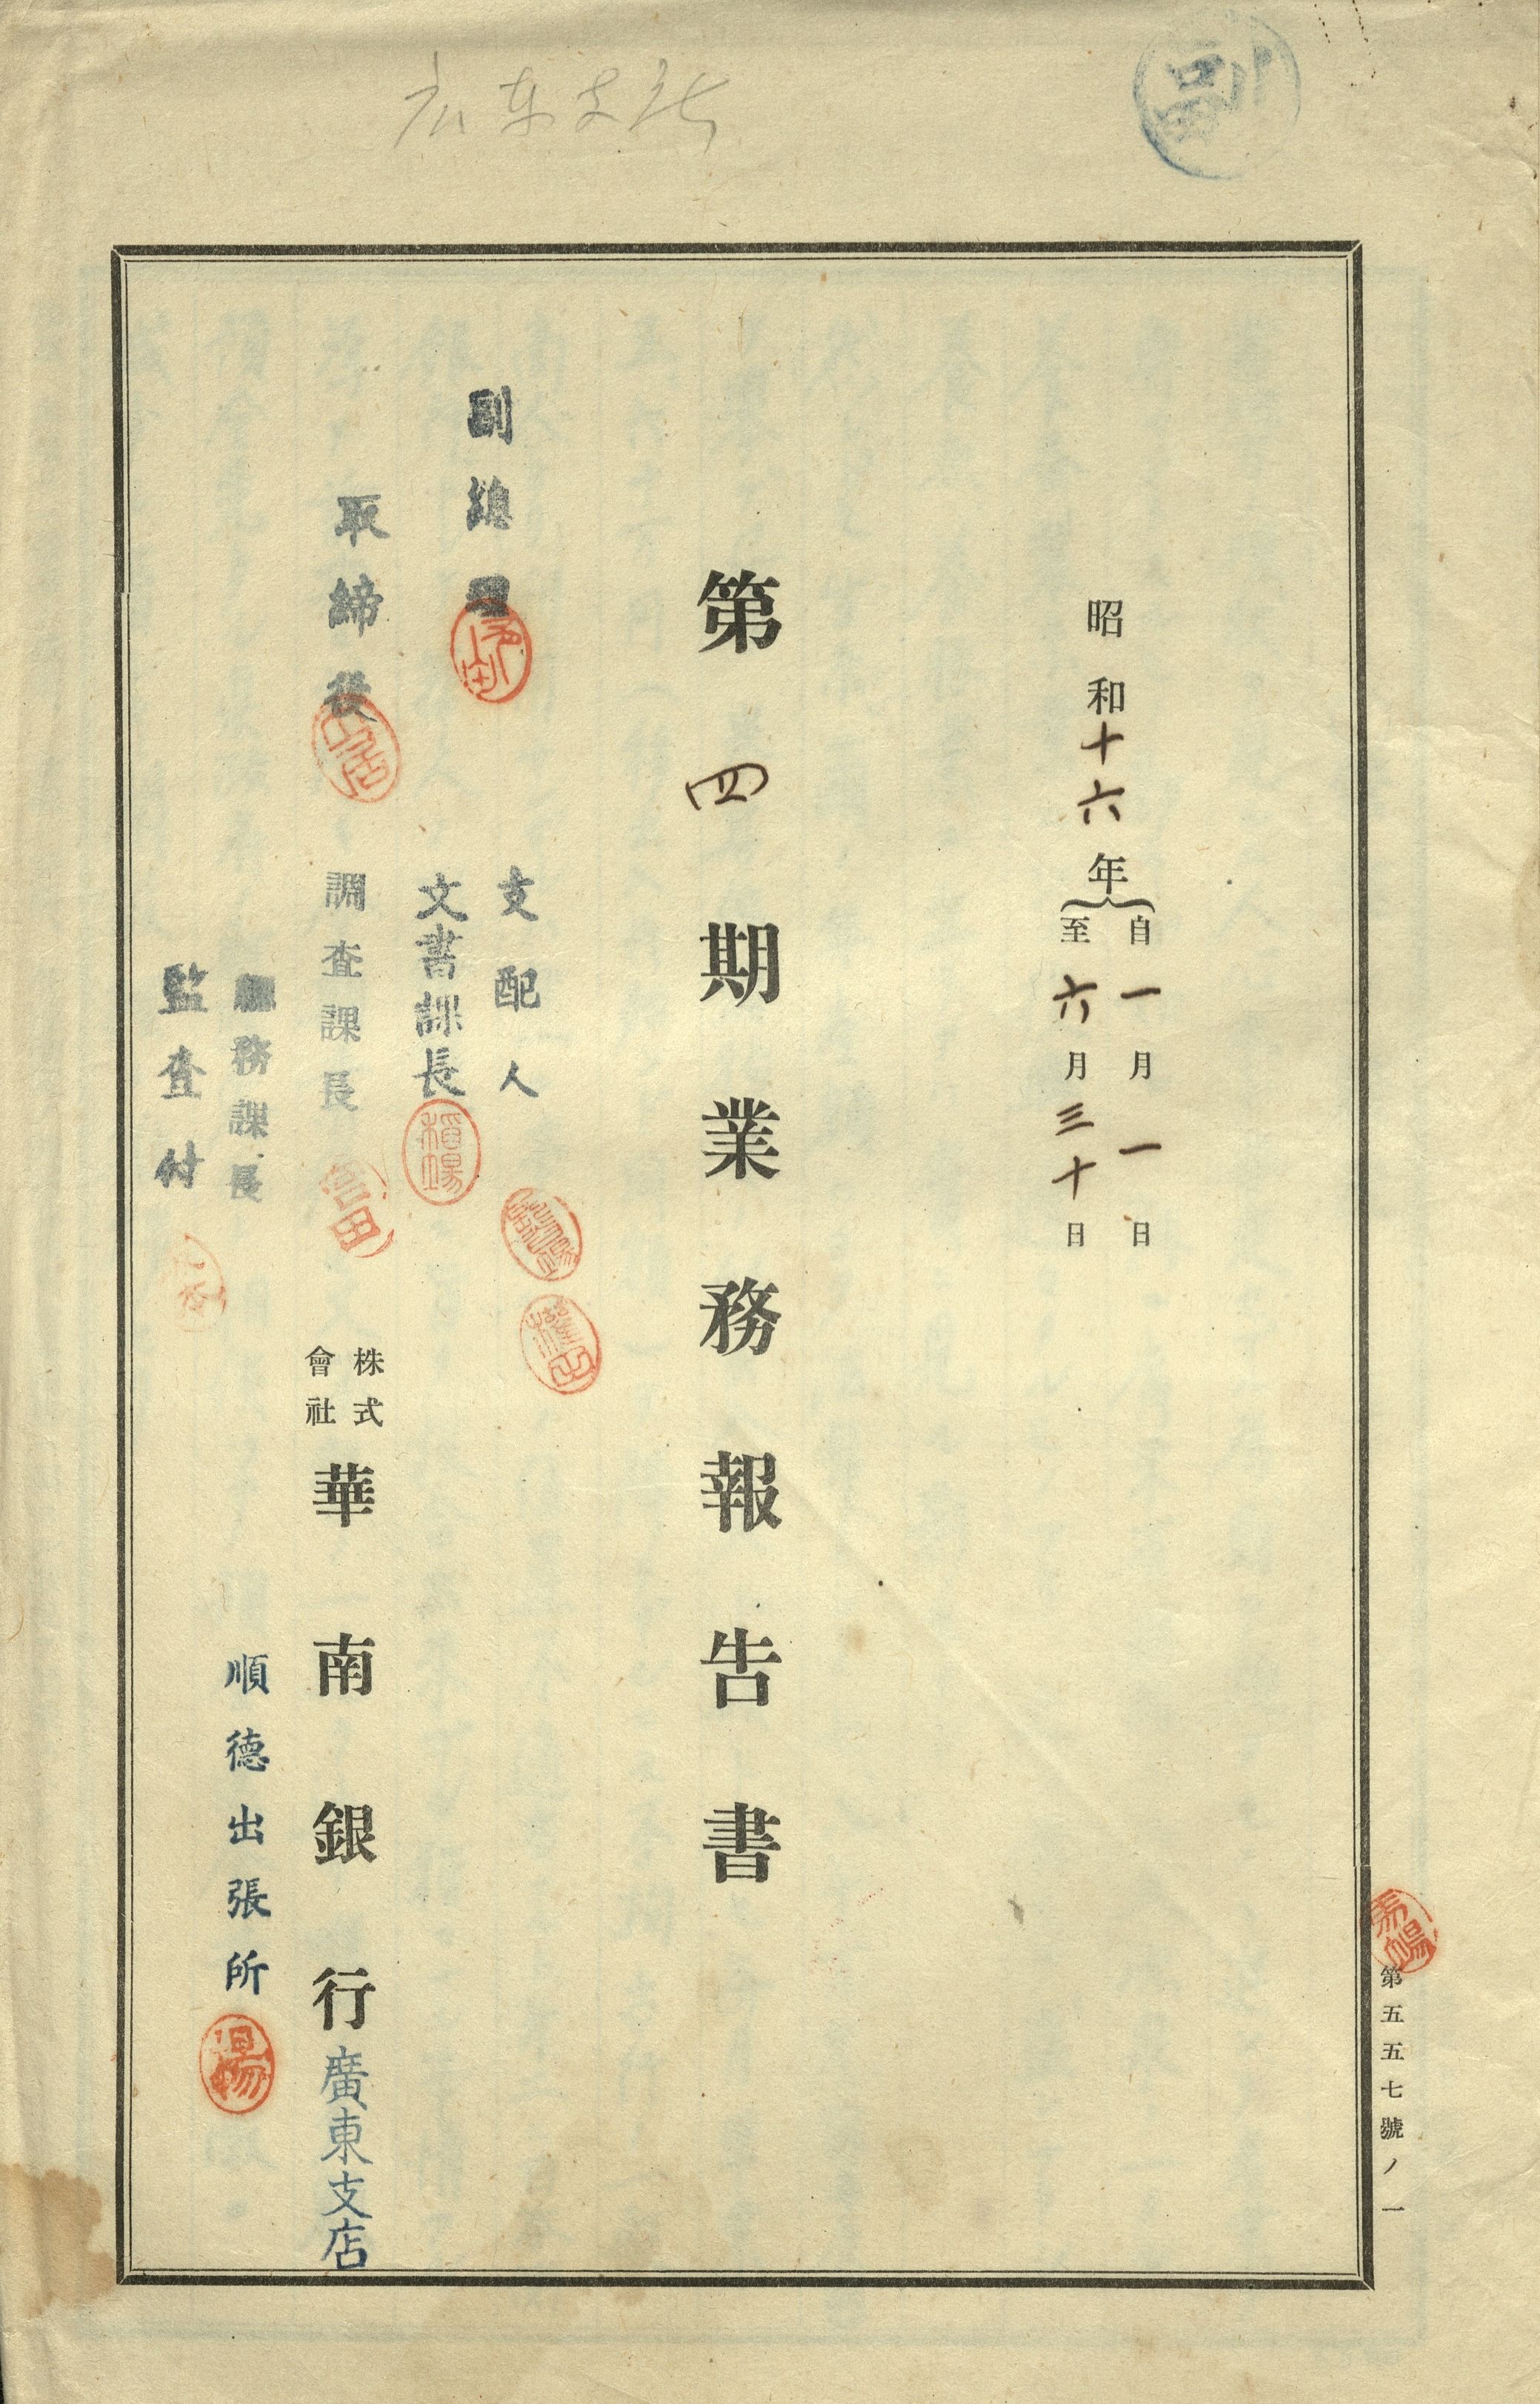 広东支店
副
昭和十六年
自一月一日
至六月三十日
第四期業務報告書
副總理
支配人
文書課長
稻場
取締役
調査課長
總務課長
監査付
株式會社
華南銀行廣東支店
順德出張所
第五五七號ノ一